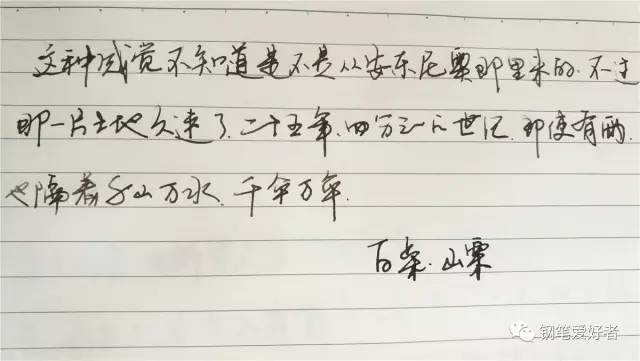 这种感觉不知道是不是从安东尼奥那里来的.不过
那一片土地久远了.二十五年.四分之一个世纪.即使有雨.
也隔着千山万水.千年万年.
百柴.山栗
钢笔爱好者